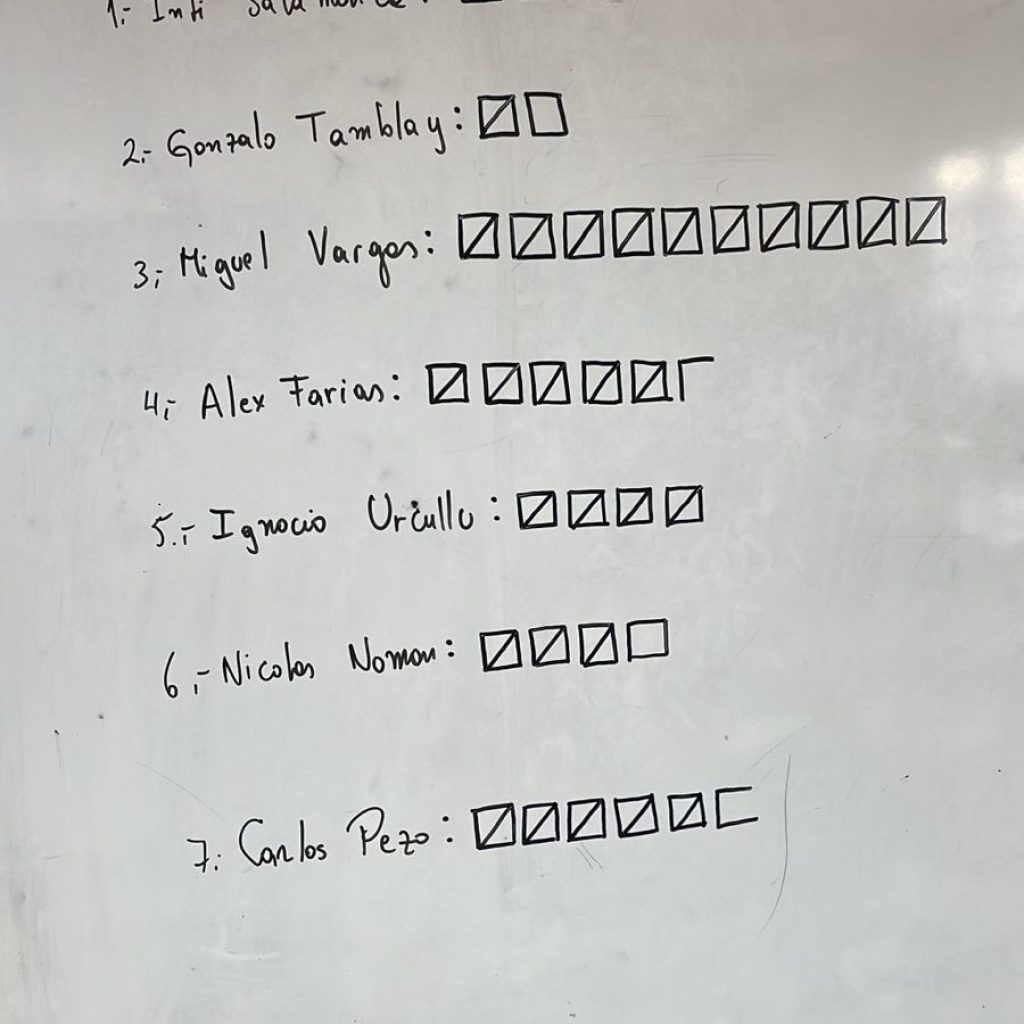 1.- Inti
2.- Gonzalo Tamblay:
3.- Miguel Vargas:
4.- Alex Farias:
5.- Ignacio Urcullu:
6.- Nicolas Noman:
7.- Carlos Pezo: